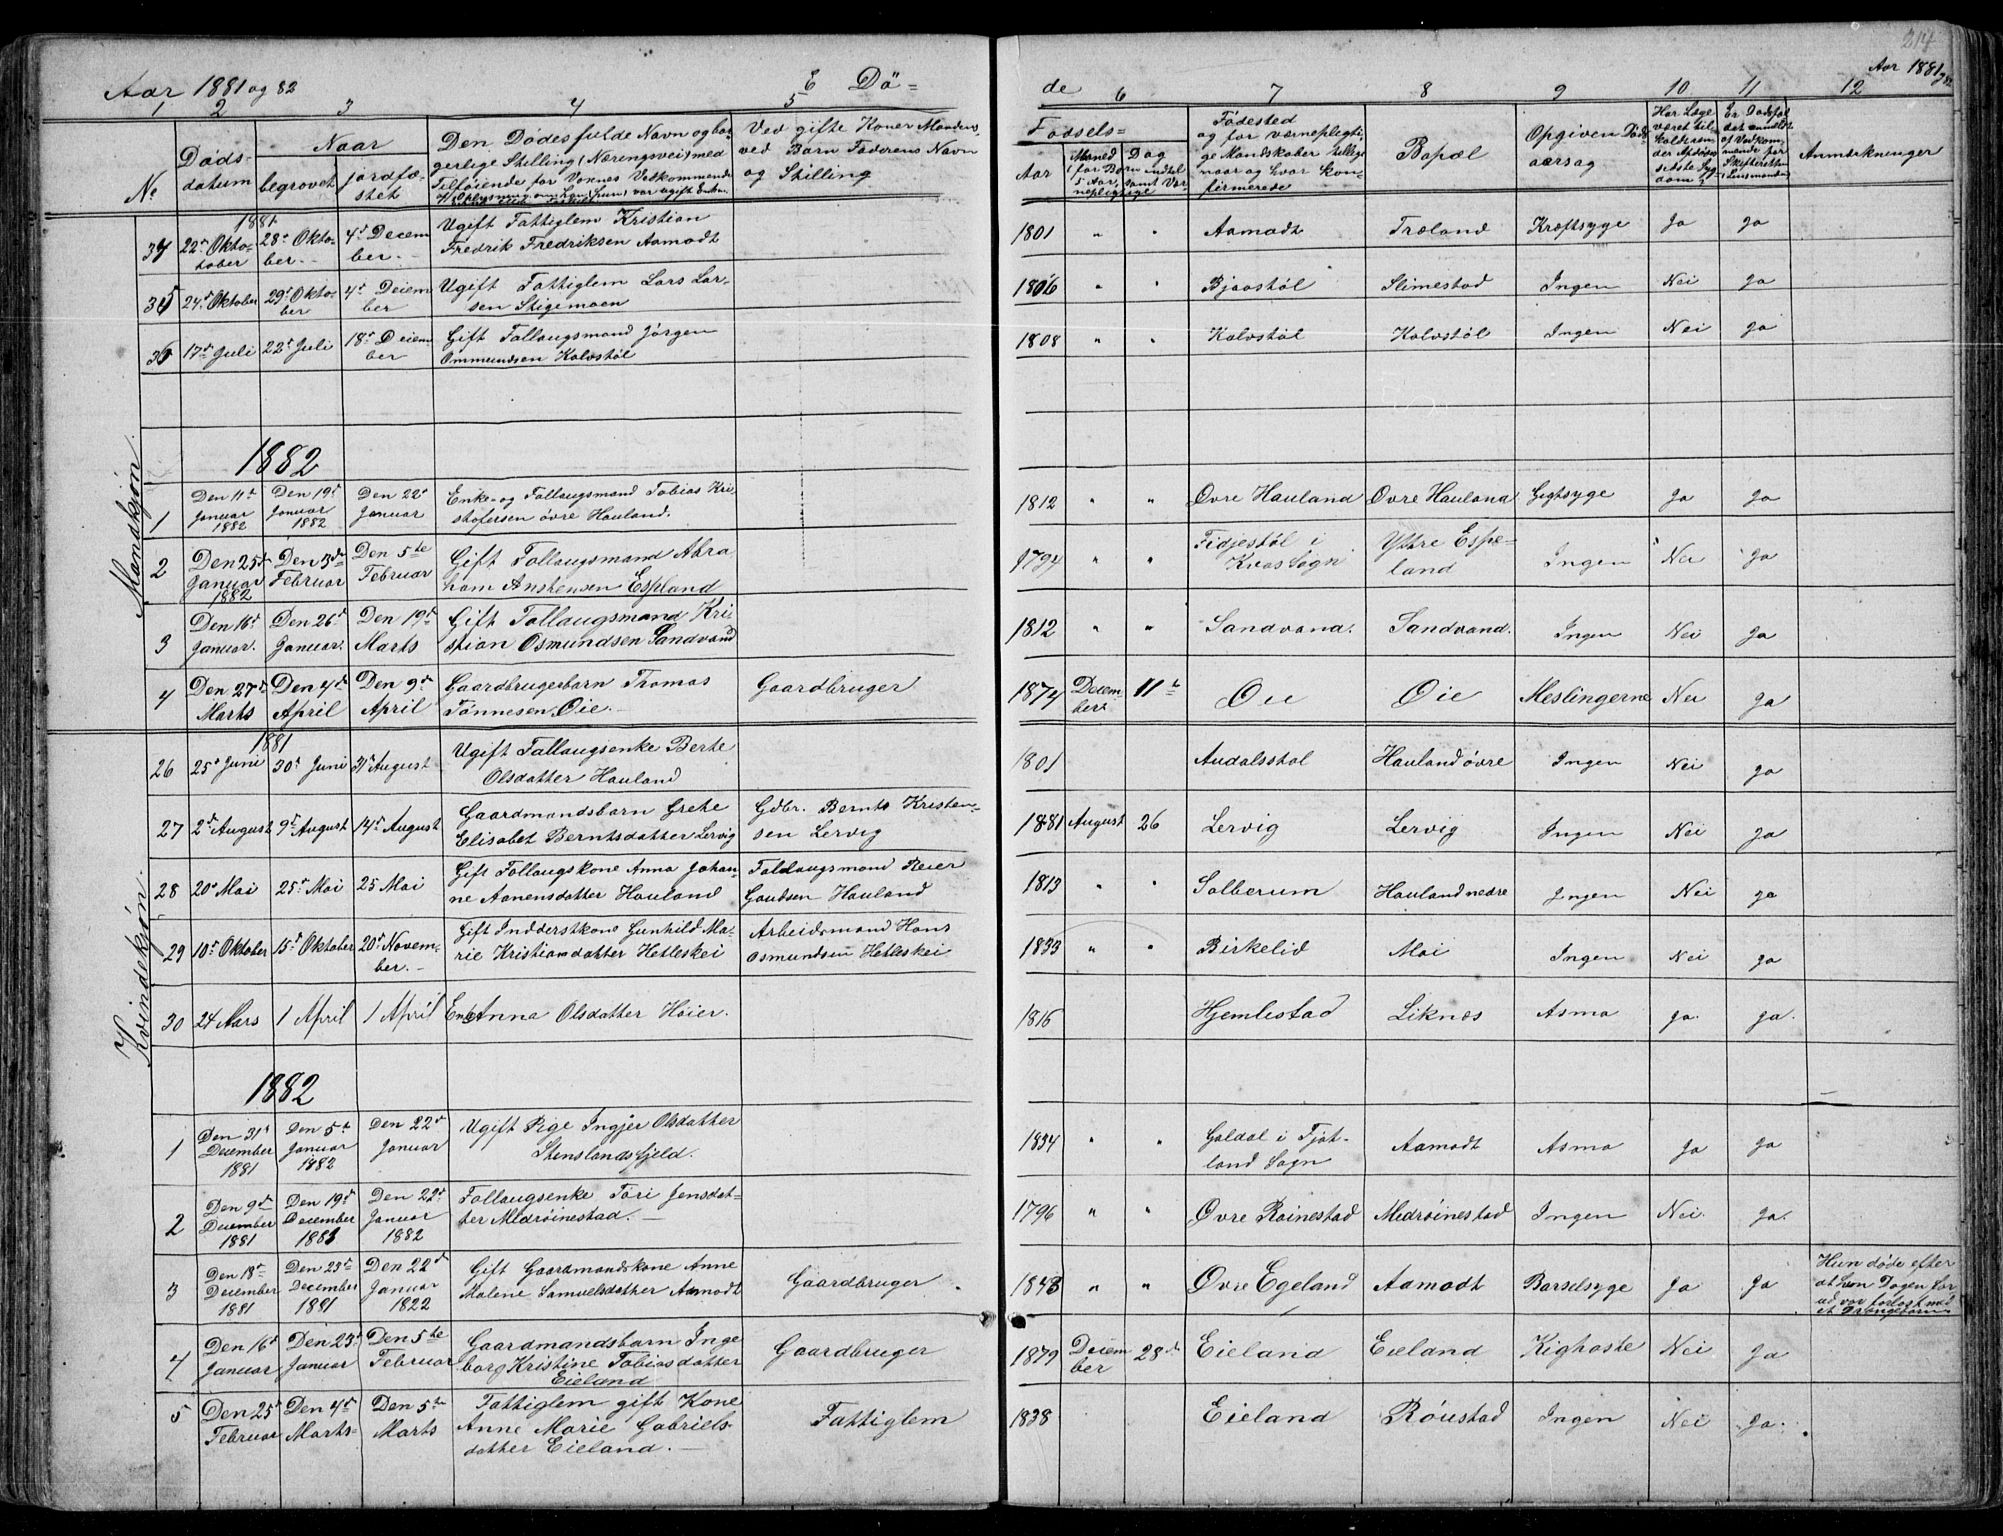 214
Aar 1881 og 82
E Dö=
de
Aar 1881 og 82
1 2 3 4 5
6 7 8 9 10 11 12
No
Dødsdatum
Naar
begrovet
jordfæstet
Den Dødes fulde Navn og borgerlige Stilling (Næringsvei) med
Tilføiende for Voxnes Vedkommende
Ved gifte Koner Mandens, ved Barn Faderens Navn og Stilling
Fødsels=
Aar
Maaned
Dag
(for Børn indtil 5 Aar, samt Værnepligtige
Fødested og for værnepligtige Mandskaber tillige naar og hvor konfirmerede
Bopæl
Opgiven Dødsaarsag
Har Læge været tilkaldt under Afdødes sidste Sygdom?
Er Dødsfaldet anmeldt
Anmerkninger
Mandkjön.
1881
34 22d Oktober 28d Oktober 4d December Ugift Fattiglem Kristian Fredrik Fredriksen Aamodt 1801 " " Aamodt Træland Kræftsyge Ja Ja
35 24d Oktober 29d Oktober 4d Deiember Ugift Fattiglem Lars Larsen Stigemoen 1806 " " Bjaastöl Slimestad Ingen Nei Ja
36 17de Juli 22d Juli 18d Deiember Gift Follaugsmand Jörgen Ommundsen Kalvstöl 1808 " " Kalvstöl Kalvstöl Ingen Nei Ja
1882
1 Den 11te Januar 1882 Den 19d Januar 1882 Den 22d Januar Enke- og Follaugsmand Tobias Kristofersen övre Hauland. 1812 " " Ovre Hauland Ovre Hauland Gigtsyge Ja Ja
2 Den 25d Januar 1882 Den 3de Februar Den 5te Februar Gift Follaugsmand Abraham Anstensen Espland 1794 " " Fidjestöl i Kvas Sogn Yttre Espeland Ingen Nei Ja
3 Den 16d Januar. Den 26d Januar. Den 19d Marts Gift Follaugsmand Kristian Osmundsen Sandvand 1812 " " Sandvand. Sandvand. Ingen Nei Ja
4 Den 27d Marts Den 4de April Den 9d April Gaardbrugerbarn Tromas Tönnesen Öie.- Gaardbruger 1874 Deiember 11te Öie Öie Meslingerne Nei Ja
Kvindekjön.
1881
26 25d Juni 30d Juni 31d August Ugift Follaugsenke Berte Olsdatter Hauland 1801 Audalsstol Hauland övre Ingen Nei Ja
27 2d August 9d August 14d August Gaardmandsbarn Grete Elisabet Berntsdatter Lervig Gdbr. Bernts Kristensen Lervig 1881 August 26 Lervig Lervig Ingen Nei Ja
28 20d Mai 25d Mai 25 Mai Gift Follaugskone Anna Johanne Aanensdatter Hauland Follaugsmand Reier Gaudsen Hauland 1813 " " Salberum Hauland nedre Ingen Nei Ja
29 10d Oktober 15d Oktober 20d November.- Gift Indderstkone Gunhild Marie Kristiansdatter Hetleskei Arbeidsmand Hans Osmundsen Hetleskei 1833 " " Birkelid Moi Ingen Nei Ja
30 24 Mars 1 April 1 April Enke Anna Olsdatter Höier. 1816 Hjemlestad Liknes Asma Ja. Ja.
1882
1 Den 31d December 1881 Den 5te Januar 1882 Den 22d Januar Ugift Pige Ingjer Olsdatter Stenslandsfjeld. 1854 " " Galdal i Fjotland Sogn Aamodt Asma Ja Ja
2 Den 9de December 1881 Den 19d December 1881 Den 22d Januar 1882 Follaugsenke Tori Jensdatter Medröinestad.- 1796 " " Ovre Röinestad Medröinestad Ingen Nei Ja.
3 Den 18d December 1881 Den 23d December 1881 Den 22d Januar 1822 Gift Gaardmandskone Anne Malene Samuelsdatter Aamodt Gaardbruger 1843 " " Ovre Egeland Aamodt Barselsyge Ja Ja Hun döde efter at hun Dagen forud var forlöst med et Drengebarn
4 Den 16d Januar Den 23d Januar Den 5te Februar Gaardmandsbarn Ingeborg Kristine Tobiasdatter Eieland Gaardbruger 1879 Deiember 28de Eieland Eieland Kighoste Nei Ja
5 Den 25d Februar Den 4de Marts- Den 5te Marts Fattiglem gift Kone Anne Marie Gabrielsdatter Eieland.- Fattiglem 1838 Eieland Röustad Ingen Nei Ja.